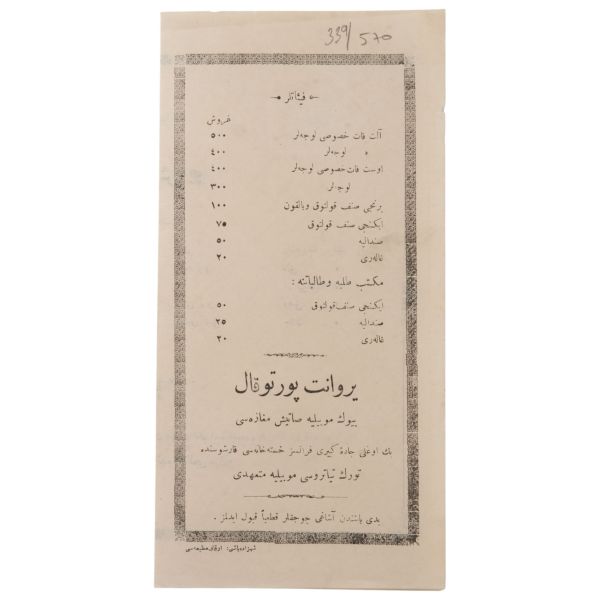 339/570
فیئاتلر
غروش
آلت قات خصوصی لوجه‌لر ٥٠٠
» لوجه‌لر ٤٠٠
اوست قات خصوصی لوجه‌لر ٤٠٠
لوجه‌لر ٣٠٠
برنجی صنف قولتوق وبالقون ١٠٠
ایکنجی صنف قولتوق ٧٥
صندالیه ٥٠
غاله‌ری ٢٠
مکتب طلبه و طالباتنه :
ایکنجی صنف قولتوق ٥٠
صندالیه ٢٥
غاله‌ری ٢٠
یروانت پورتوقال
بیوك موبیلیه صاتیش مغازه‌سی
بك اوغلی جادهٔ کبیری فرانسز خسته‌خانه‌سی قارشوسنده
تورك تیاتروسی موبیلیه متعهدی
یدی یاشندن آشاغی چوجقلر قطعیاً قبول ایدلمز .
شهزاده‌باشی: اوقاف مطبعه‌سی